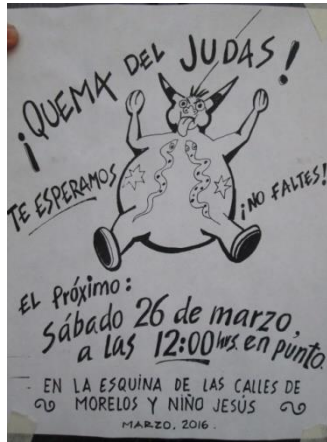 ¡QUEMA DEL JUDAS!
TE ESPERAMOS
¡NO FALTES!
EL Próximo:
Sábado 26 de marzo,
a las 12:00 hrs. en punto.
EN LA ESQUINA DE LAS CALLES DE
MORELOS Y NIÑO JESÚS
MARZO, 2016.